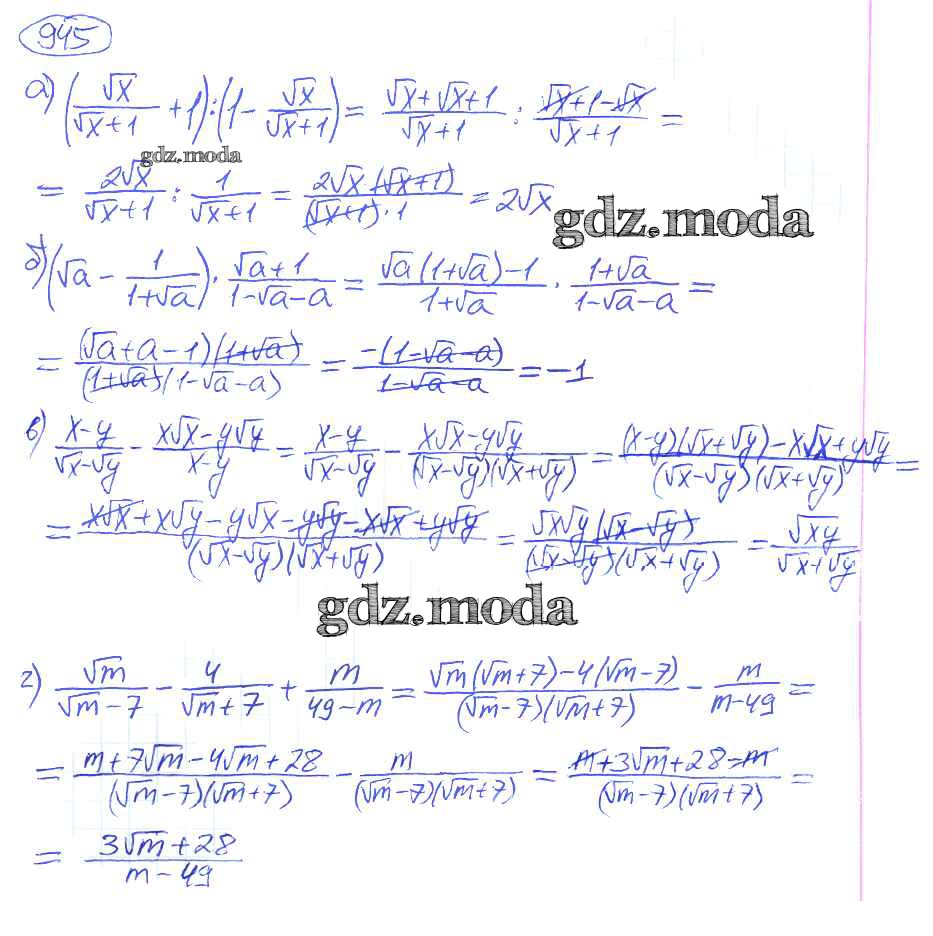 945
а) (√x/(√x+1) + 1) : (1 - √x/(√x+1)) = (√x+√x+1)/(√x+1) : (√x+1-√x)/(√x+1) =
gdz.moda
= 2√x/(√x+1) : 1/(√x+1) = 2√x(√x+1)/((√x+1)·1) = 2√x
gdz.moda
б) (√a - 1/(1+√a)) · (√a+1)/(1-√a-a) = (√a(1+√a)-1)/(1+√a) · (1+√a)/(1-√a-a) =
= (√a+a-1)(1+√a)/((1+√a)(1-√a-a)) = -(1-√a-a)/(1-√a-a) = -1
в) (x-y)/(√x-√y) - (x√x-y√y)/(x-y) = (x-y)/(√x-√y) - (x√x-y√y)/((√x-√y)(√x+√y)) = ((x-y)(√x+√y)-x√x+y√y)/((√x-√y)(√x+√y)) =
= (x√x+x√y-y√x-y√y-x√x+y√y)/((√x-√y)(√x+√y)) = √x√y(√x-√y)/((√x-√y)(√x+√y)) = √xy/(√x+√y)
gdz.moda
г) √m/(√m-7) - 4/(√m+7) + m/(49-m) = (√m(√m+7)-4(√m-7))/((√m-7)(√m+7)) - m/(m-49) =
= (m+7√m-4√m+28)/((√m-7)(√m+7)) - m/((√m-7)(√m+7)) = (m+3√m+28-m)/((√m-7)(√m+7)) =
= (3√m+28)/(m-49)